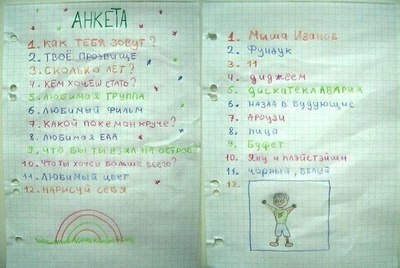 АНКЕТА
1. КАК ТЕБЯ ЗОВУТ?
2. ТВОЁ ПРОЗВИЩЕ
3. СКОЛЬКО ЛЕТ?
4. КЕМ ХОЧЕШ СТАТЬ?
5. ЛЮБИМАЯ ГРУППА
6. ЛЮБИМЫЙ ФИЛЬМ
7. КАКОЙ ПОКЕМОН КРУЧЕ?
8. ЛЮБИМАЯ ЕДА
9. ЧТО БЫ ТЫ ВЗЯЛ НА ОСТРОВ?
10. ЧТО ТЫ ХОЧЕШ БОЛЬШЕ ВСЕГО?
11. ЛЮБИМЫЙ ЦВЕТ
12. НАРИСУЙ СЕБЯ
1. Миша Иванов
2. Фундук
3. 11
4. диджеем
5. дискотека АВАРИЯ
6. назад в будующие
7. Арбузи
8. пица
9. Буфет
10. Яну и плэйстэйшн
11. чорный, белый
12.